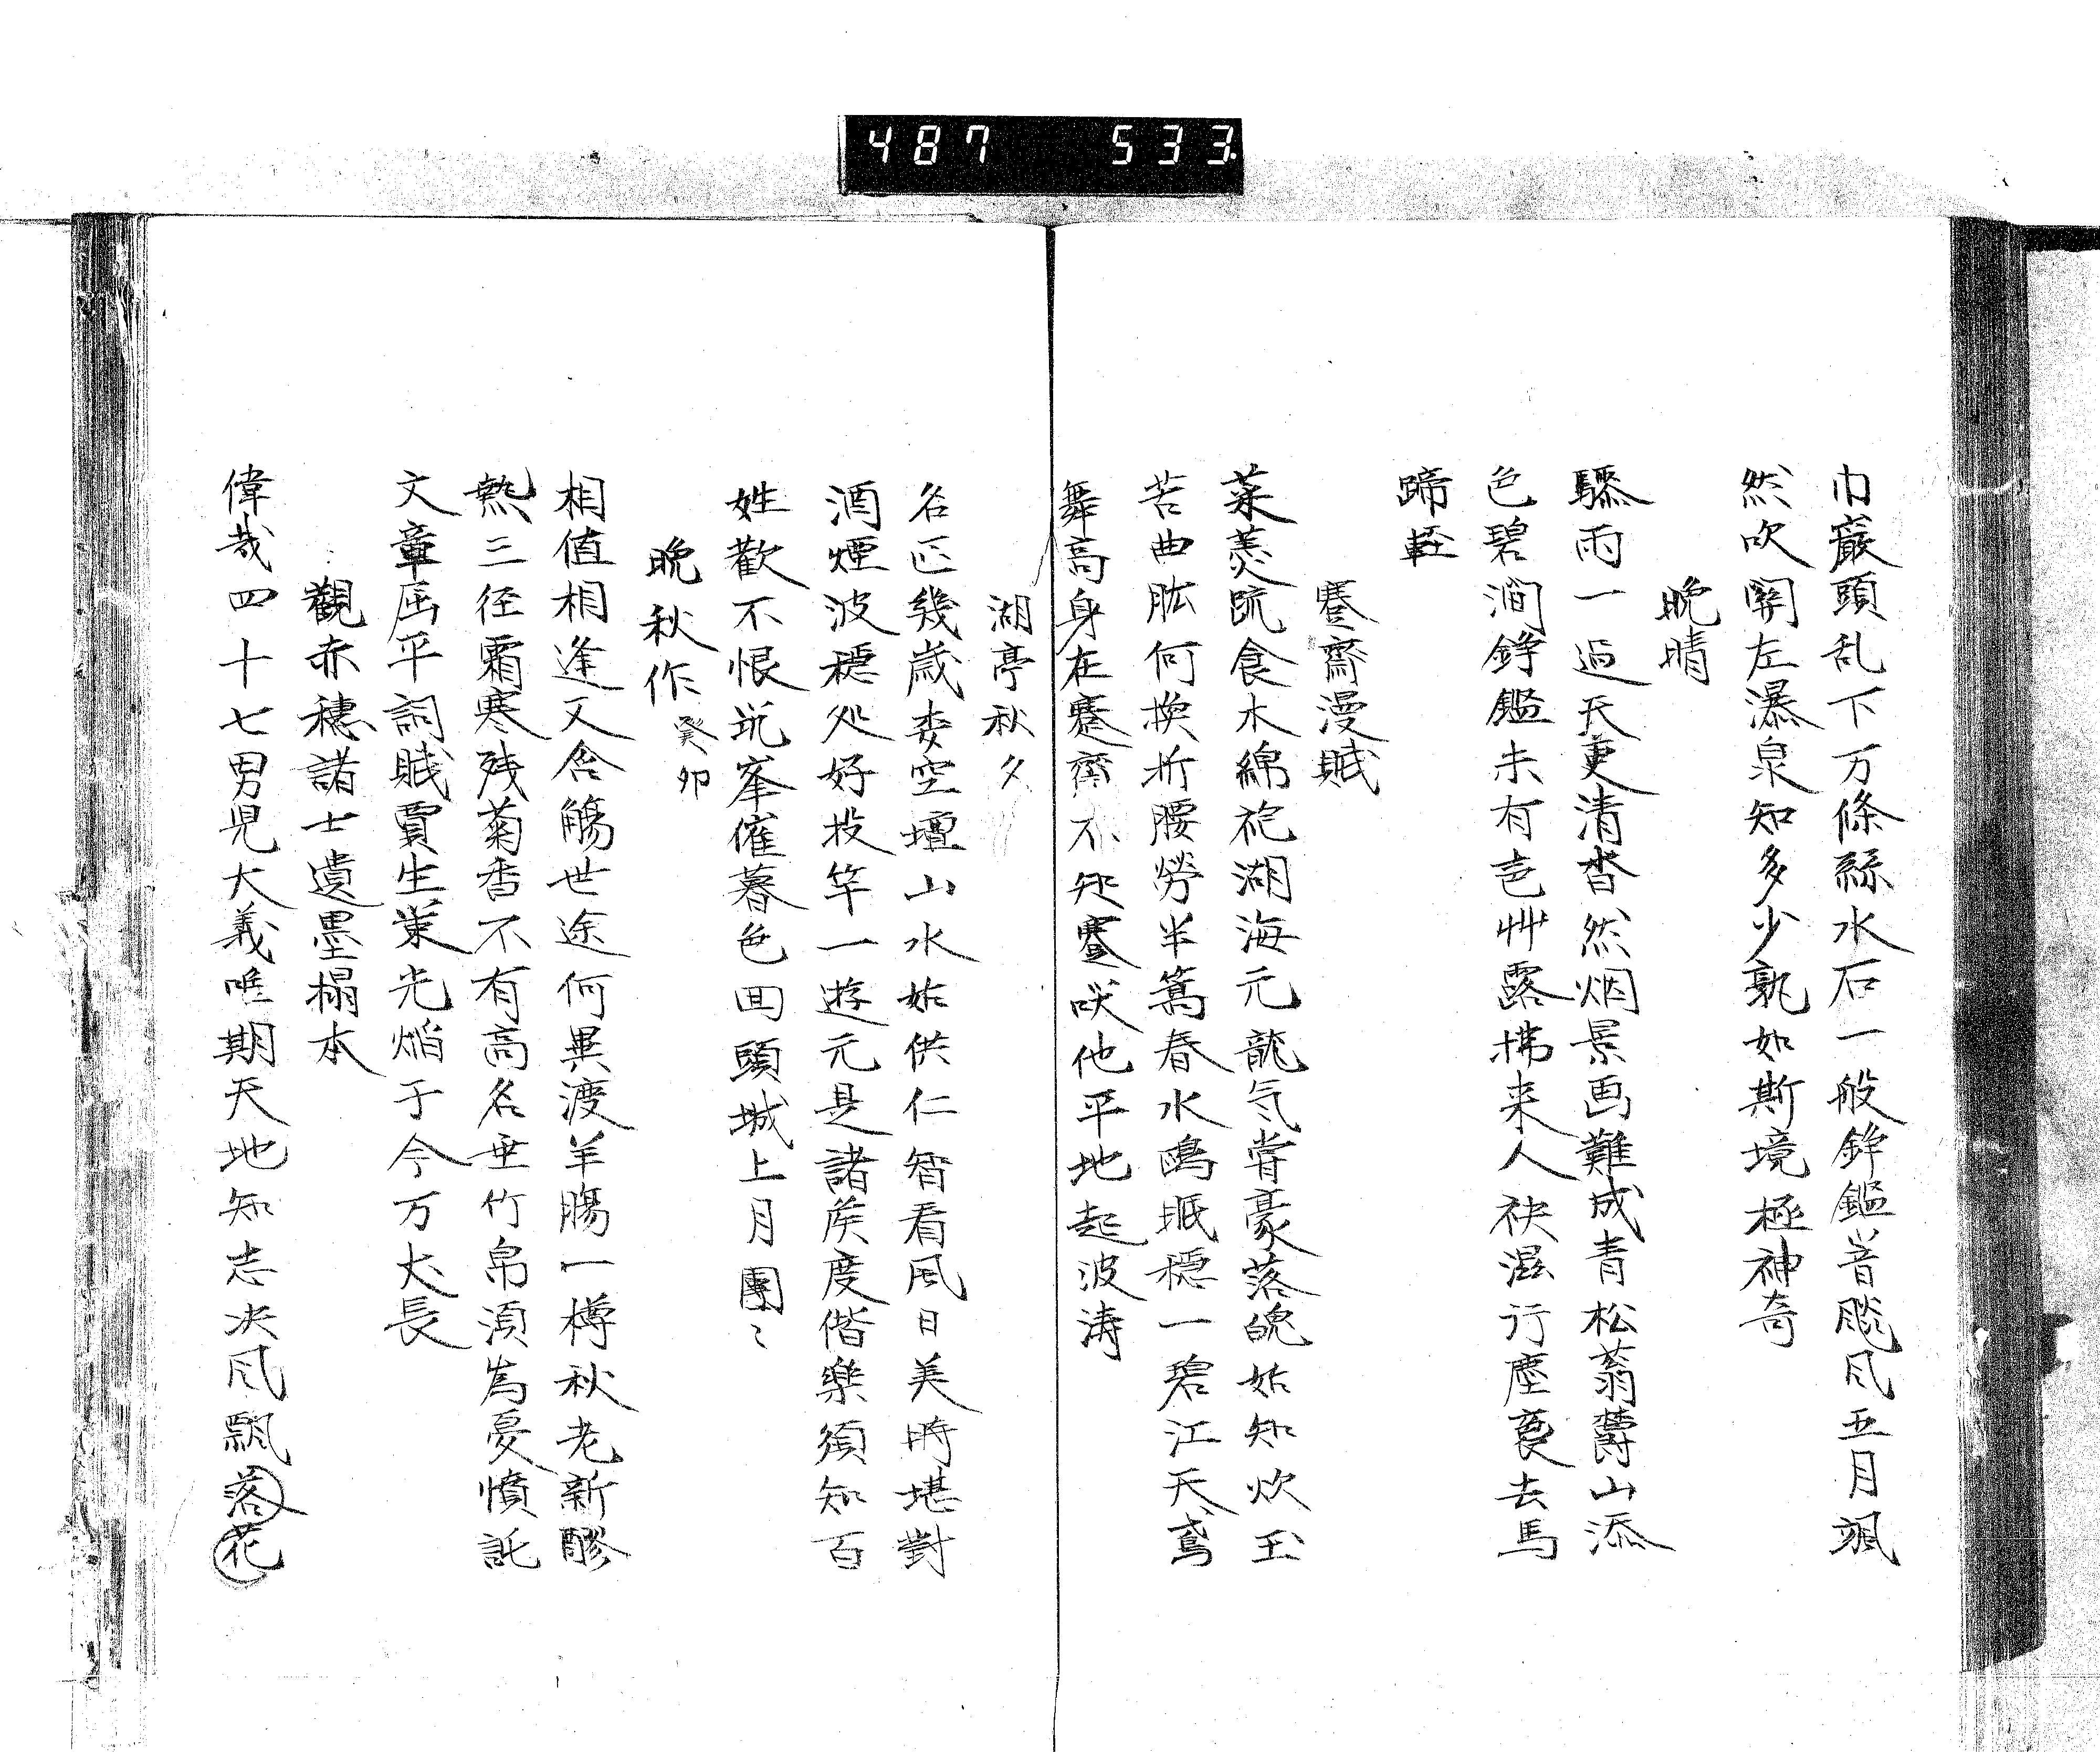 487 533
巾巌頭乱下万條絲水石一般錚鏗音颼風五月颯
然吹闢左瀑泉知多少孰如斯境極神奇
晩晴
驟雨一過天更清沓然烟景画難成青松蓊欝山添
色碧澗錚鏗未有声艸露拂来人袂濕行塵衰去馬
蹄軽
蹇齋漫賦
菜羮疏食木綿袍湖海元龍气嘗豪落魄始知炊玉
苦曲肱何換折腰勞半篙春水鷗眠穏一碧江天鳶
舞高身在蹇齋不知蹇咲他平地起波涛
湖亭秋夕
名区幾歳委空壇山水始供仁智看風日美時堪對
酒煙波穏処好投竿一遊元是諸矦度偕樂須知百
姓歡不恨筑峯催暮色回頭城上月團〻
晩秋作 癸卯
相值相逢又含觴世途何異渡羊腸一樽秋老新醪
熱三径霜寒残菊香不有高名垂竹帛須為憂憤託
文章屈平詞賦賈生策光熖于今万丈長
觀赤穗諸士遺墨榻本
偉哉四十七男児大義唯期天地知志决風飄落花